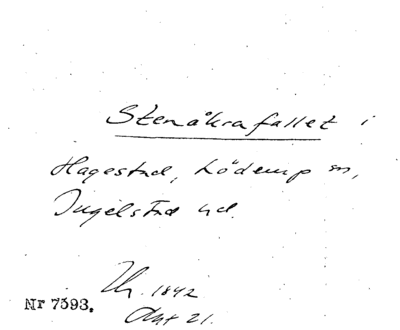 Stenåkrafallet i
Hagestad, Löderup sn,
Ingelstad hd.
Th. 1842
Akt 21.
Nr 7593.